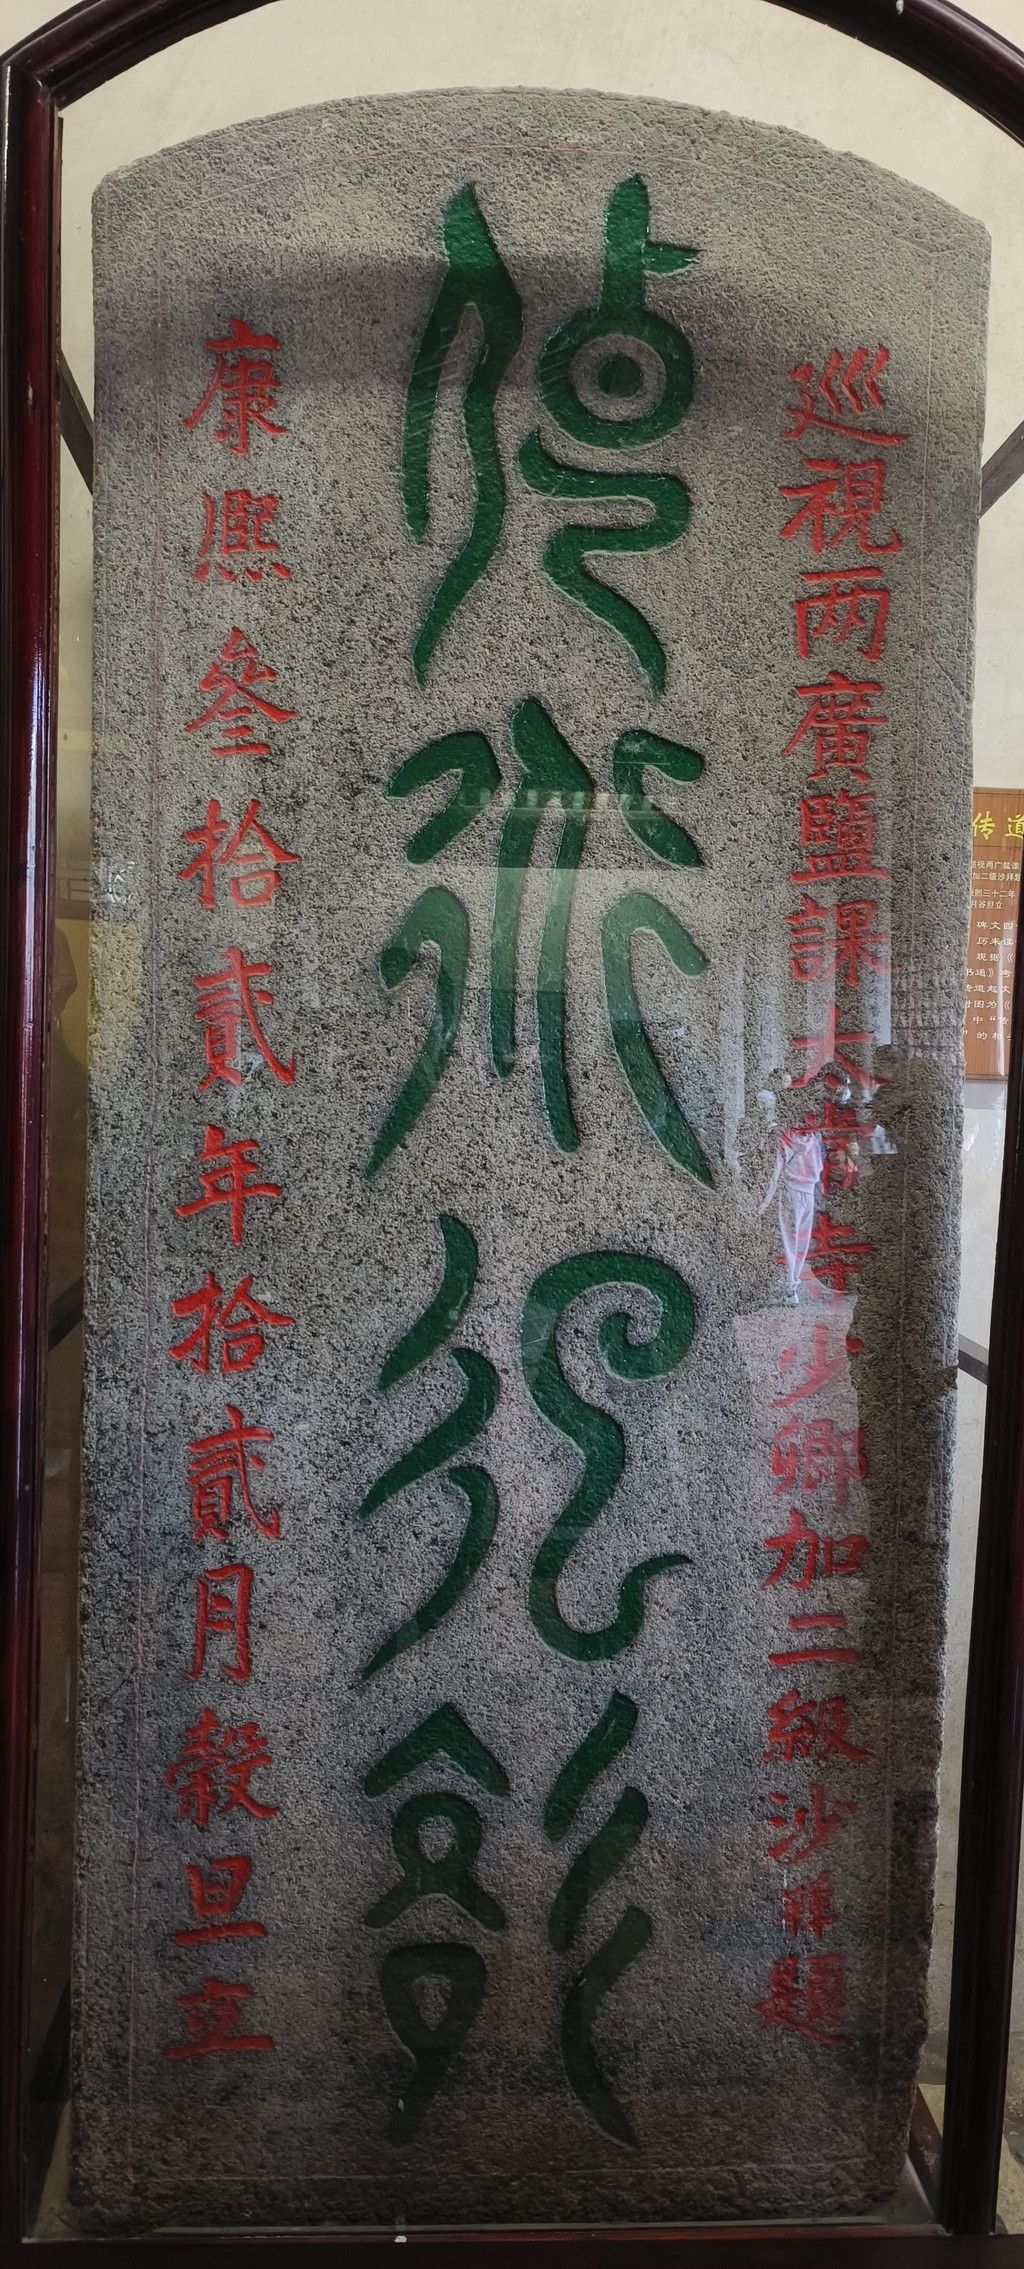 巡視两廣鹽課太常寺少卿加二級沙拜題
傳道起文
康熙叁拾貳年拾貳月穀旦立
传道
巡视两广盐课
加二级沙拜题
康熙三十二年
月谷旦立
碑文四
历来读
现据《
书通》考
传道起文
附图为《
中“传
”的相